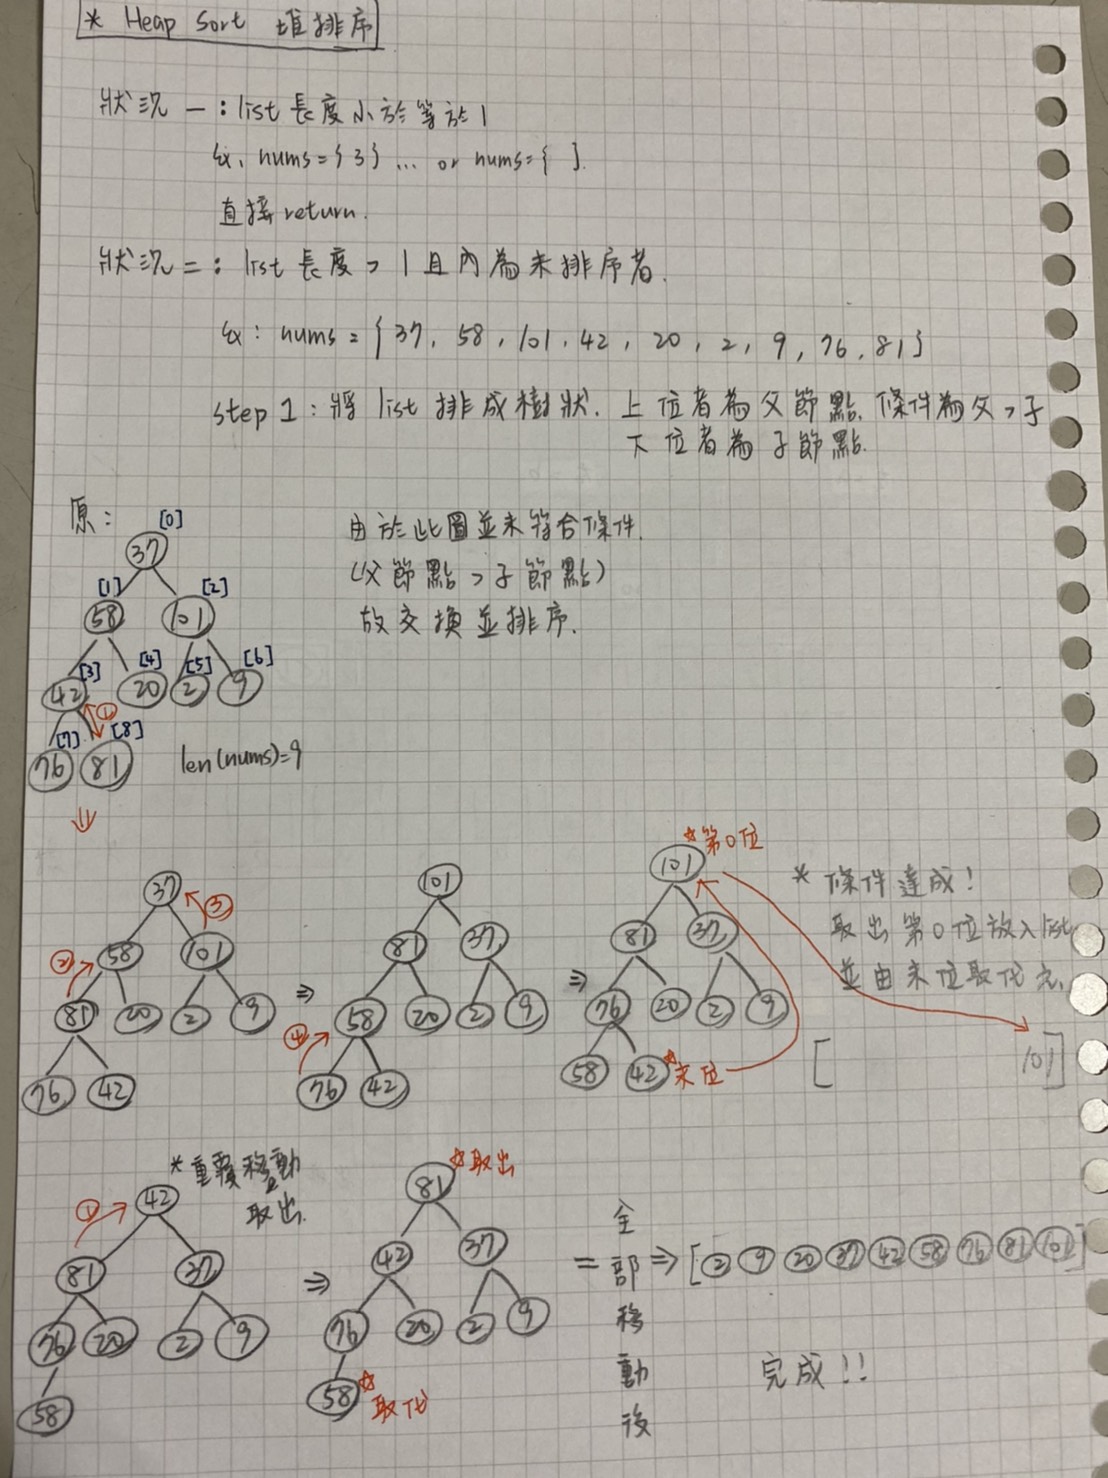 * Heap Sort 堆排序
狀況一:list 長度小於等於1
ex, nums={3} ... or nums={ }.
直接 return.
狀況二:list 長度>1且內為未排序者.
ex: nums={37, 58, 101, 42, 20, 2, 9, 76, 81}
step 1:將 list 排成樹狀. 上位者為父節點. 條件為父>子
下位者為子節點.
原:
[0]
37
[1] [2]
58 101
[3] [4] [5] [6]
42 20 2 9
①
[7] [8]
76 81
len(nums)=9
由於此圖並未符合條件.
(父節點>子節點)
故交換並排序.
37
③
② 58 101
81 20 2 9
76 42
⇒
101
81 37
④ 58 20 2 9
76 42
⇒
☆第0位
101
81 37
76 20 2 9
58 42 ☆末位
* 條件達成!
取出第0位放入list
並由末位取代之.
[ 101]
*重覆移動
取出.
① 42
81 37
76 20 2 9
58
⇒
☆取出
81
42 37
76 20 2 9
58 ☆取代
= 全部移動後 ⇒ [2 9 20 37 42 58 76 81 101]
完成!!